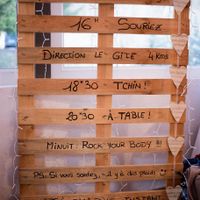 16" Souriez...
Direction le gîte 4 kms
18"30 Tchin!
20"30 -À table!
Minuit: Rock your body!!!
PS: Si vous caillez, il y a des plaids